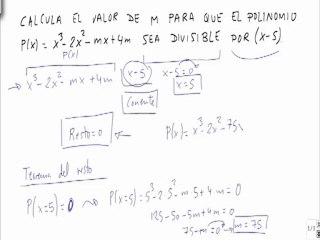 CALCULA EL VALOR DE M PARA QUE EL POLINOMIO
P(x) = x³-2x²-mx+4m SEA DIVISIBLE POR (x-5)
P(x)
x³-2x²-mx+4m (x-5) x-5=0
x=5
Cociente
Resto=0 P(x)=x³-2x²-75
Teorema del resto
P(x=5)=0 P(x=5)=5³-2·5²-m·5+4m=0
125-50-5m+4m=0
75-m=0 m=75
1/1